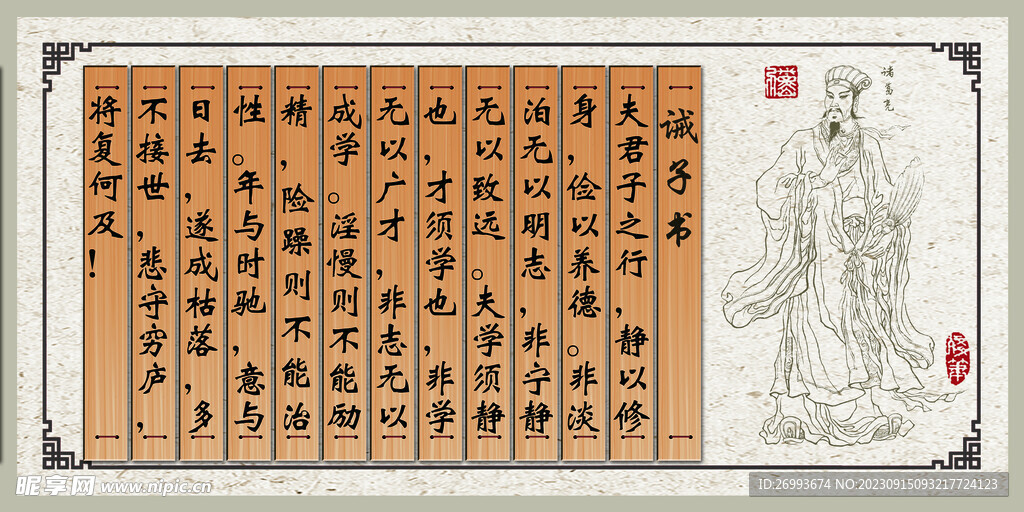 诫子书
夫君子之行，静以修
身，俭以养德。非淡
泊无以明志，非宁静
无以致远。夫学须静
也，才须学也，非学
无以广才，非志无以
成学。淫慢则不能励
精，险躁则不能治
性。年与时驰，意与
日去，遂成枯落，多
不接世，悲守穷庐，
将复何及！
诸葛亮
昵享网 www.nipic.cn
ID:26993674 NO:20230915093217724123